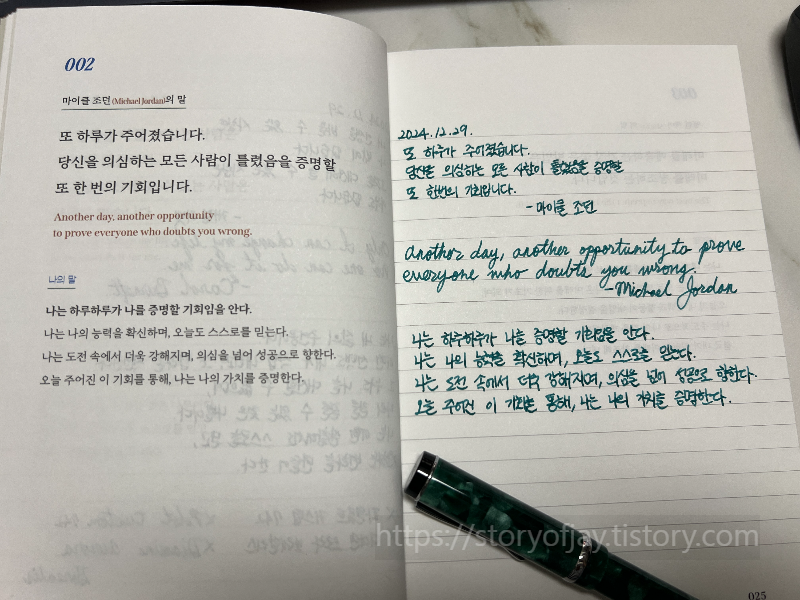 002
마이클 조던(Michael Jordan)의 말
또 하루가 주어졌습니다.
당신을 의심하는 모든 사람이 틀렸음을 증명할
또 한 번의 기회입니다.
Another day, another opportunity
to prove everyone who doubts you wrong.
나의 말
나는 하루하루가 나를 증명할 기회임을 안다.
나는 나의 능력을 확신하며, 오늘도 스스로를 믿는다.
나는 도전 속에서 더욱 강해지며, 의심을 넘어 성공으로 향한다.
오늘 주어진 이 기회를 통해, 나는 나의 가치를 증명한다.
2024.12.29.
또 하루가 주어졌습니다.
당신을 의심하는 모든 사람이 틀렸음을 증명할
또 한번의 기회입니다.
- 마이클 조던
Another day, another opportunity to prove
everyone who doubts you wrong.
- Michael Jordan
나는 하루하루가 나를 증명할 기회임을 안다.
나는 나의 능력을 확신하며, 오늘도 스스로를 믿는다.
나는 도전 속에서 더욱 강해지며, 의심을 넘어 성공으로 향한다.
오늘 주어진 이 기회를 통해, 나는 나의 가치를 증명한다.
https://storyofjay.tistory.com
025